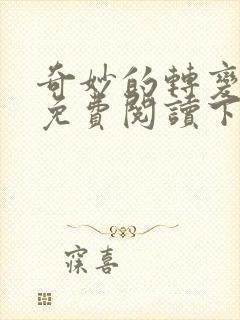 奇妙的轉變
免費閱讀下
寐喜